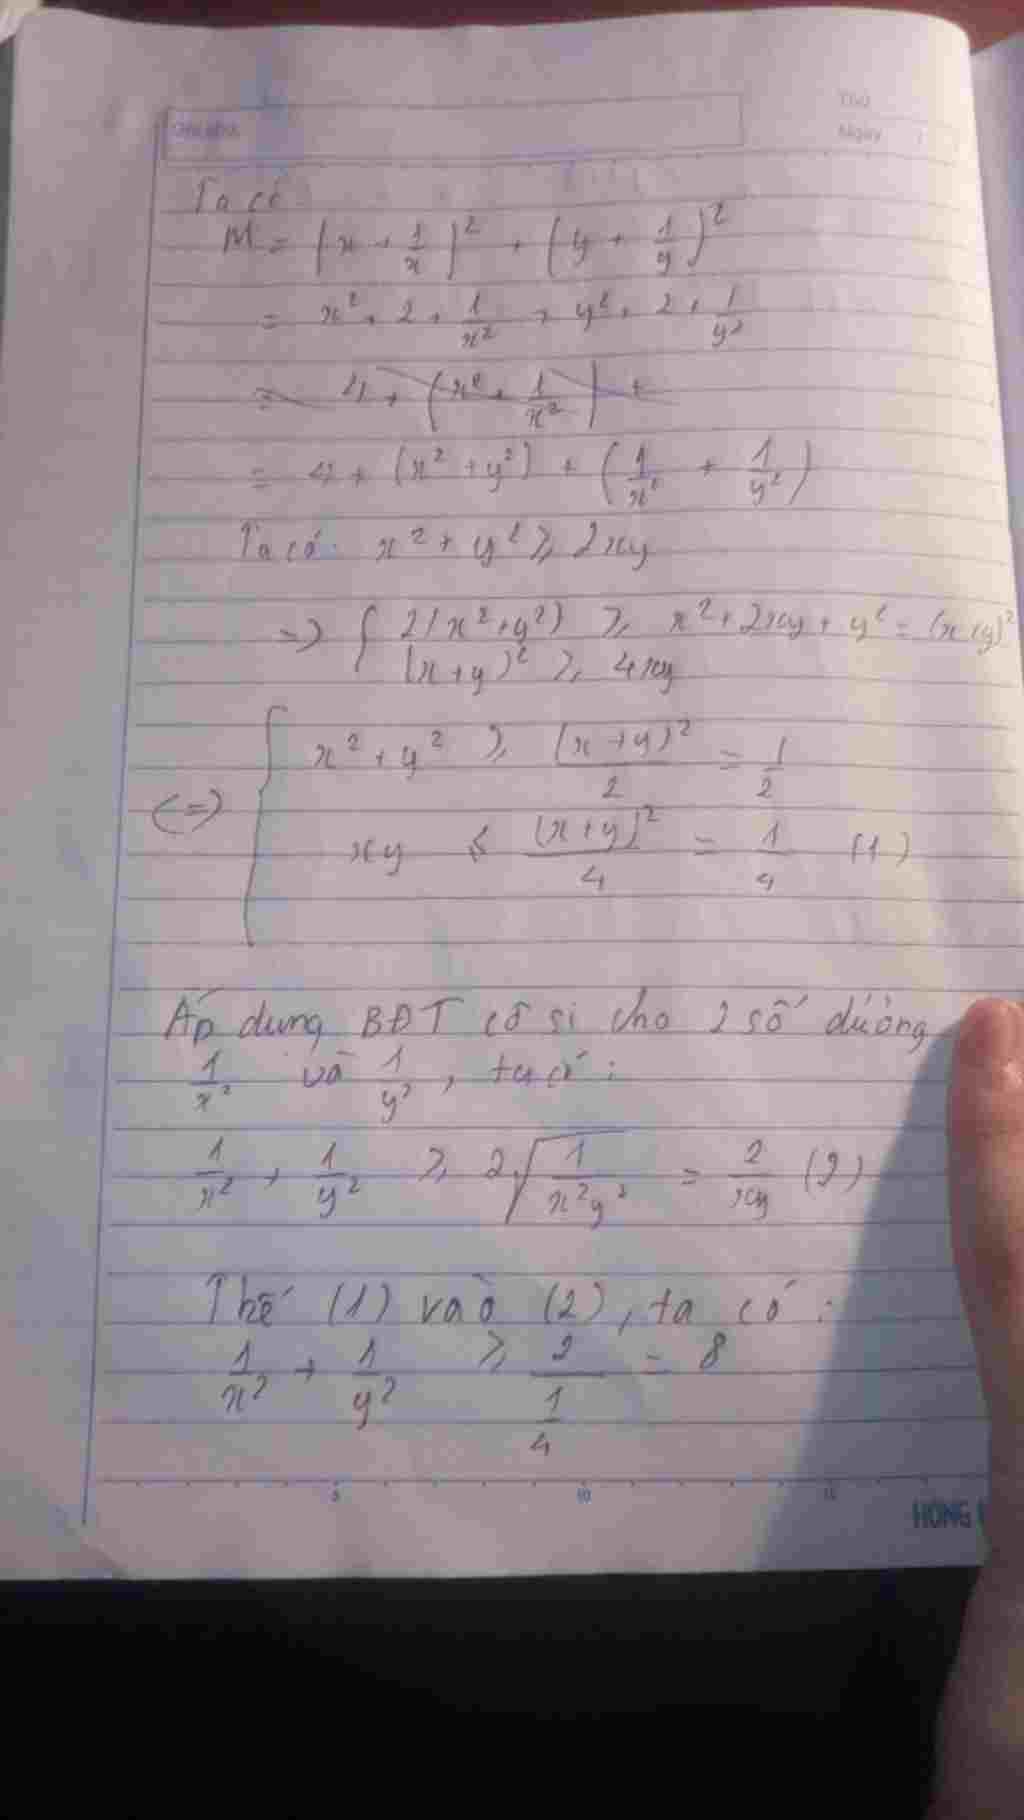 Thứ
Ngày
Ta có
M = (x + 1/x)² + (y + 1/y)²
= x² + 2 + 1/x² + y² + 2 + 1/y²
= 4 + (x² + 1/x²) +
= 4 + (x² + y²) + (1/x² + 1/y²)
Ta có: x² + y² ≥ 2xy
=> { 2(x² + y²) ≥ x² + 2xy + y² = (x+y)²
(x+y)² ≥ 4xy
(=) { x² + y² ≥ (x+y)²/2 = 1/2
xy ≤ (x+y)²/4 = 1/4 (1)
Áp dụng BĐT cô si cho 2 số dương
1/x² và 1/y², ta có:
1/x² + 1/y² ≥ 2√(1/(x²y²)) = 2/xy (2)
Thế (1) vào (2), ta có:
1/x² + 1/y² ≥ 2/(1/4) = 8
5 10 15
HONG